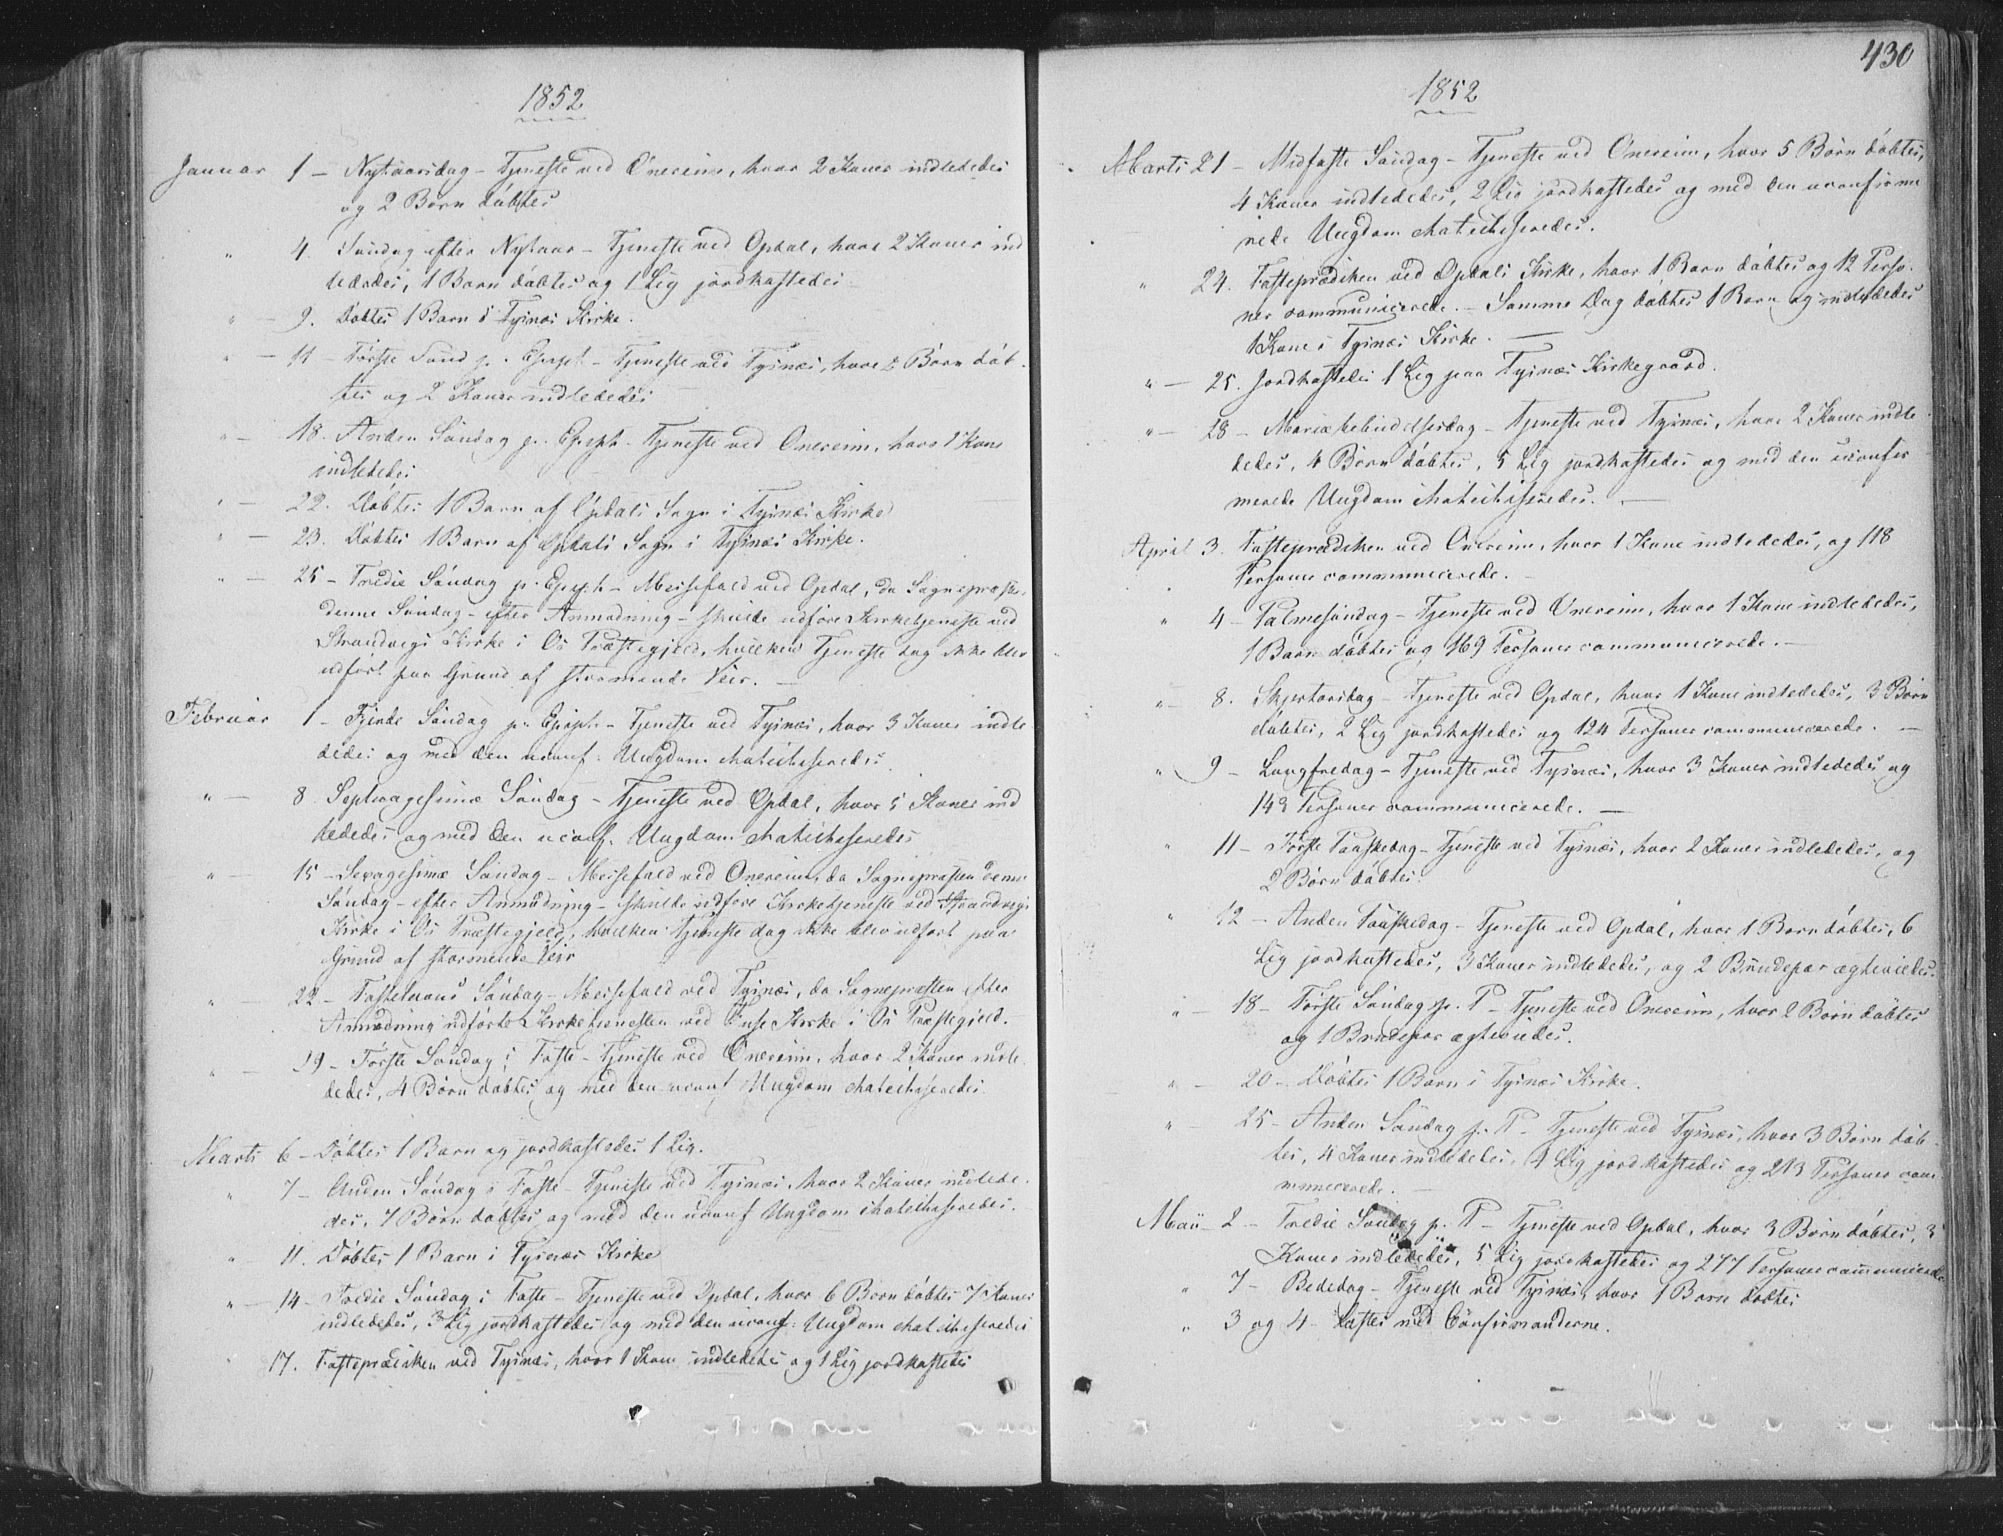 1852
Januar 1 – Nytaarsdag – Tjeneste ved Onereim, hvor 2 Koner indlededes
og 2 Børn døbtes
" 4. Søndag efter Nytaar – Tjeneste ved Opdal, hvor 2 Koner ind
lededes, 1 Barn døbtes og 1 Lig jordkastedes
" – 9. Døbtes 1 Barn i Tysnæs Kirke.
" – 11 – Første Sønd. p. Epiph. – Tjeneste ved Tysnæs, hvor Børn døb-
tes og 2 Koner indlededes
" – 18. Anden Søndag p. Epiph. – Tjeneste ved Onereim, hvor 1 Kone
indlededes
" – 22. Døbtes 1 Barn af Opdals Sogn i Tysnæs Kirke
" – 23. Døbtes 1 Barn af Opdals Sogn i Tysnæs Kirke.
" – 25 – Tredie Søndag p. Epiph – Messefald ved Opdal, da Sognepræsten
denne Søndag – efter Anmodning – skulde udføre Kirketjeneste ved
Strandvigs Kirke i Os Præstegjeld, hvilken Tjeneste dog ikke blev
udført paa Grund af stormende Veir. –
Februar 1 – Fjerde Søndag p. Epiph. – Tjeneste ved Tysnæs, hvor 3 Koner indle
dedes og med den uconf. Ungdom chatechiseredes
" – 8 Septuagesimæ Søndag – Tjeneste ved Opdal, hvor 5 Koner ind
lededes og med den uconf. Ungdom chatechiseredes
" – 15 – Sexagesimæ Søndag – Messefald ved Onereim, da Sognepræsten denne
Søndag – efter Anmodning – skulde udføre Kirketjeneste ved Strandvigs
Kirke i Os Præstegjeld, hvilken Tjeneste dog ikke blev udført paa
Grund af stormende Veir
" 22 – Fastelavns Søndag – Messefald ved Tysnæs, da Sognepræsten efter
Anmodning udførte Kirketjenesten ved Fuse Kirke i Os Præstegjeld.
" – 29 – Første Søndag i Faste – Tjeneste ved Onereim, hvor 2 Koner indle
dedes, 4 Børn døbtes og med den uconf Ungdom chatechiseredes
Marts 6 – Døbtes 1 Barn og jordkastedes 1 Lig.
" 7 – Anden Søndag i Faste – Tjeneste ved Tysnæs, hvor 2 Koner indlede
des, 7 Børn døbtes og med den uconf Ungdom chatechiseredes.
" 11. Døbtes 1 Barn i Tysnæs Kirke
" – 14 – Tredie Søndag i Faste – Tjeneste ved Opdal, hvor 6 Børn døbtes 7 Koner
indlededes, 3 Lig jordkastedes og med den uconf. Ungdom chatechiseredes
" 17. Fasteprædiken ved Tysnæs, hvor 1 Kone indlededes og 1 Lig jordkastedes
430
1852
Marts 21 – Midfaste Søndag – Tjeneste ved Onereim, hvor 5 Børn døbtes,
4 Koner indlededes, 2 Lig jordkastedes og med den uconfirme
rede Ungdom chatechiseredes.
" 24. Fasteprædiken ved Opdals Kirke, hvor 1 Barn døbtes og 12 Perso-
ner communicerede. – Samme Dag døbtes 1 Barn og indlededes
1 Kone i Tysnæs Kirke. –
" – 25. Jordkastedes 1 Lig paa Tysnæs Kirkegaard.
" – 28 – Mariæ Bebudelsesdag – Tjeneste ved Tysnæs, hvor 2 Koner indle
dedes, 4 Børn døbtes, 5 Lig jordkastedes og med den uconfir
merede Ungdom chatechiseredes. –
April 3. Fasteprædiken ved Onereim, hvor 1 Kone indlededes, og 118
Personer communicerede. –
" 4 – Palmesøndag – Tjeneste ved Onereim, hvor 1 Kone indlededes,
1 Barn døbtes og 169 Personer communicerede. –
" – 8. Skjertorsdag – Tjeneste ved Opdal, hvor 1 Kone indlededes, 3 Børn
døbtes, 2 Lig jordkastedes og 124 Personer communicerede. –
" 9 – Langfredag – Tjeneste ved Tysnæs, hvor 3 Koner indlededes og
149 Personer communicerede. –
" 11 – Første Paaskedag – Tjeneste ved Tysnæs, hvor 2 Koner indlededes, og
2 Børn døbtes.
" 12 – Anden Paaskedag – Tjeneste ved Opdal, hvor 1 Barn døbtes, 6
Lig jordkastedes, 3 Koner indlededes, og 2 Brudepar ægteviedes.
" – 18 – Første Søndag p. P – Tjeneste ved Onereim, hvor 2 Børn døbtes
og 1 Brudepar ægteviedes.
" – 20 – Døbtes 1 Barn i Tysnæs Kirke.
" – 25 – Anden Søndag p. P – Tjeneste ved Tysnæs, hvor 3 Børn døb-
tes, 4 Koner indlededes, 4 Lig jordkastedes og 213 Personer com
municerede. –
Maii – 2 – Tredie Søndag p. P – Tjeneste ved Opdal, hvor 3 Børn døbtes, 3
Koner indlededes, 5 Lig jordkastedes og 277 Personer communicerede
" 7 – Bededag – Tjeneste ved Tysnæs, hvor 1 Barn døbtes
" 3 og 4 – Læstes med Confirmanderne.